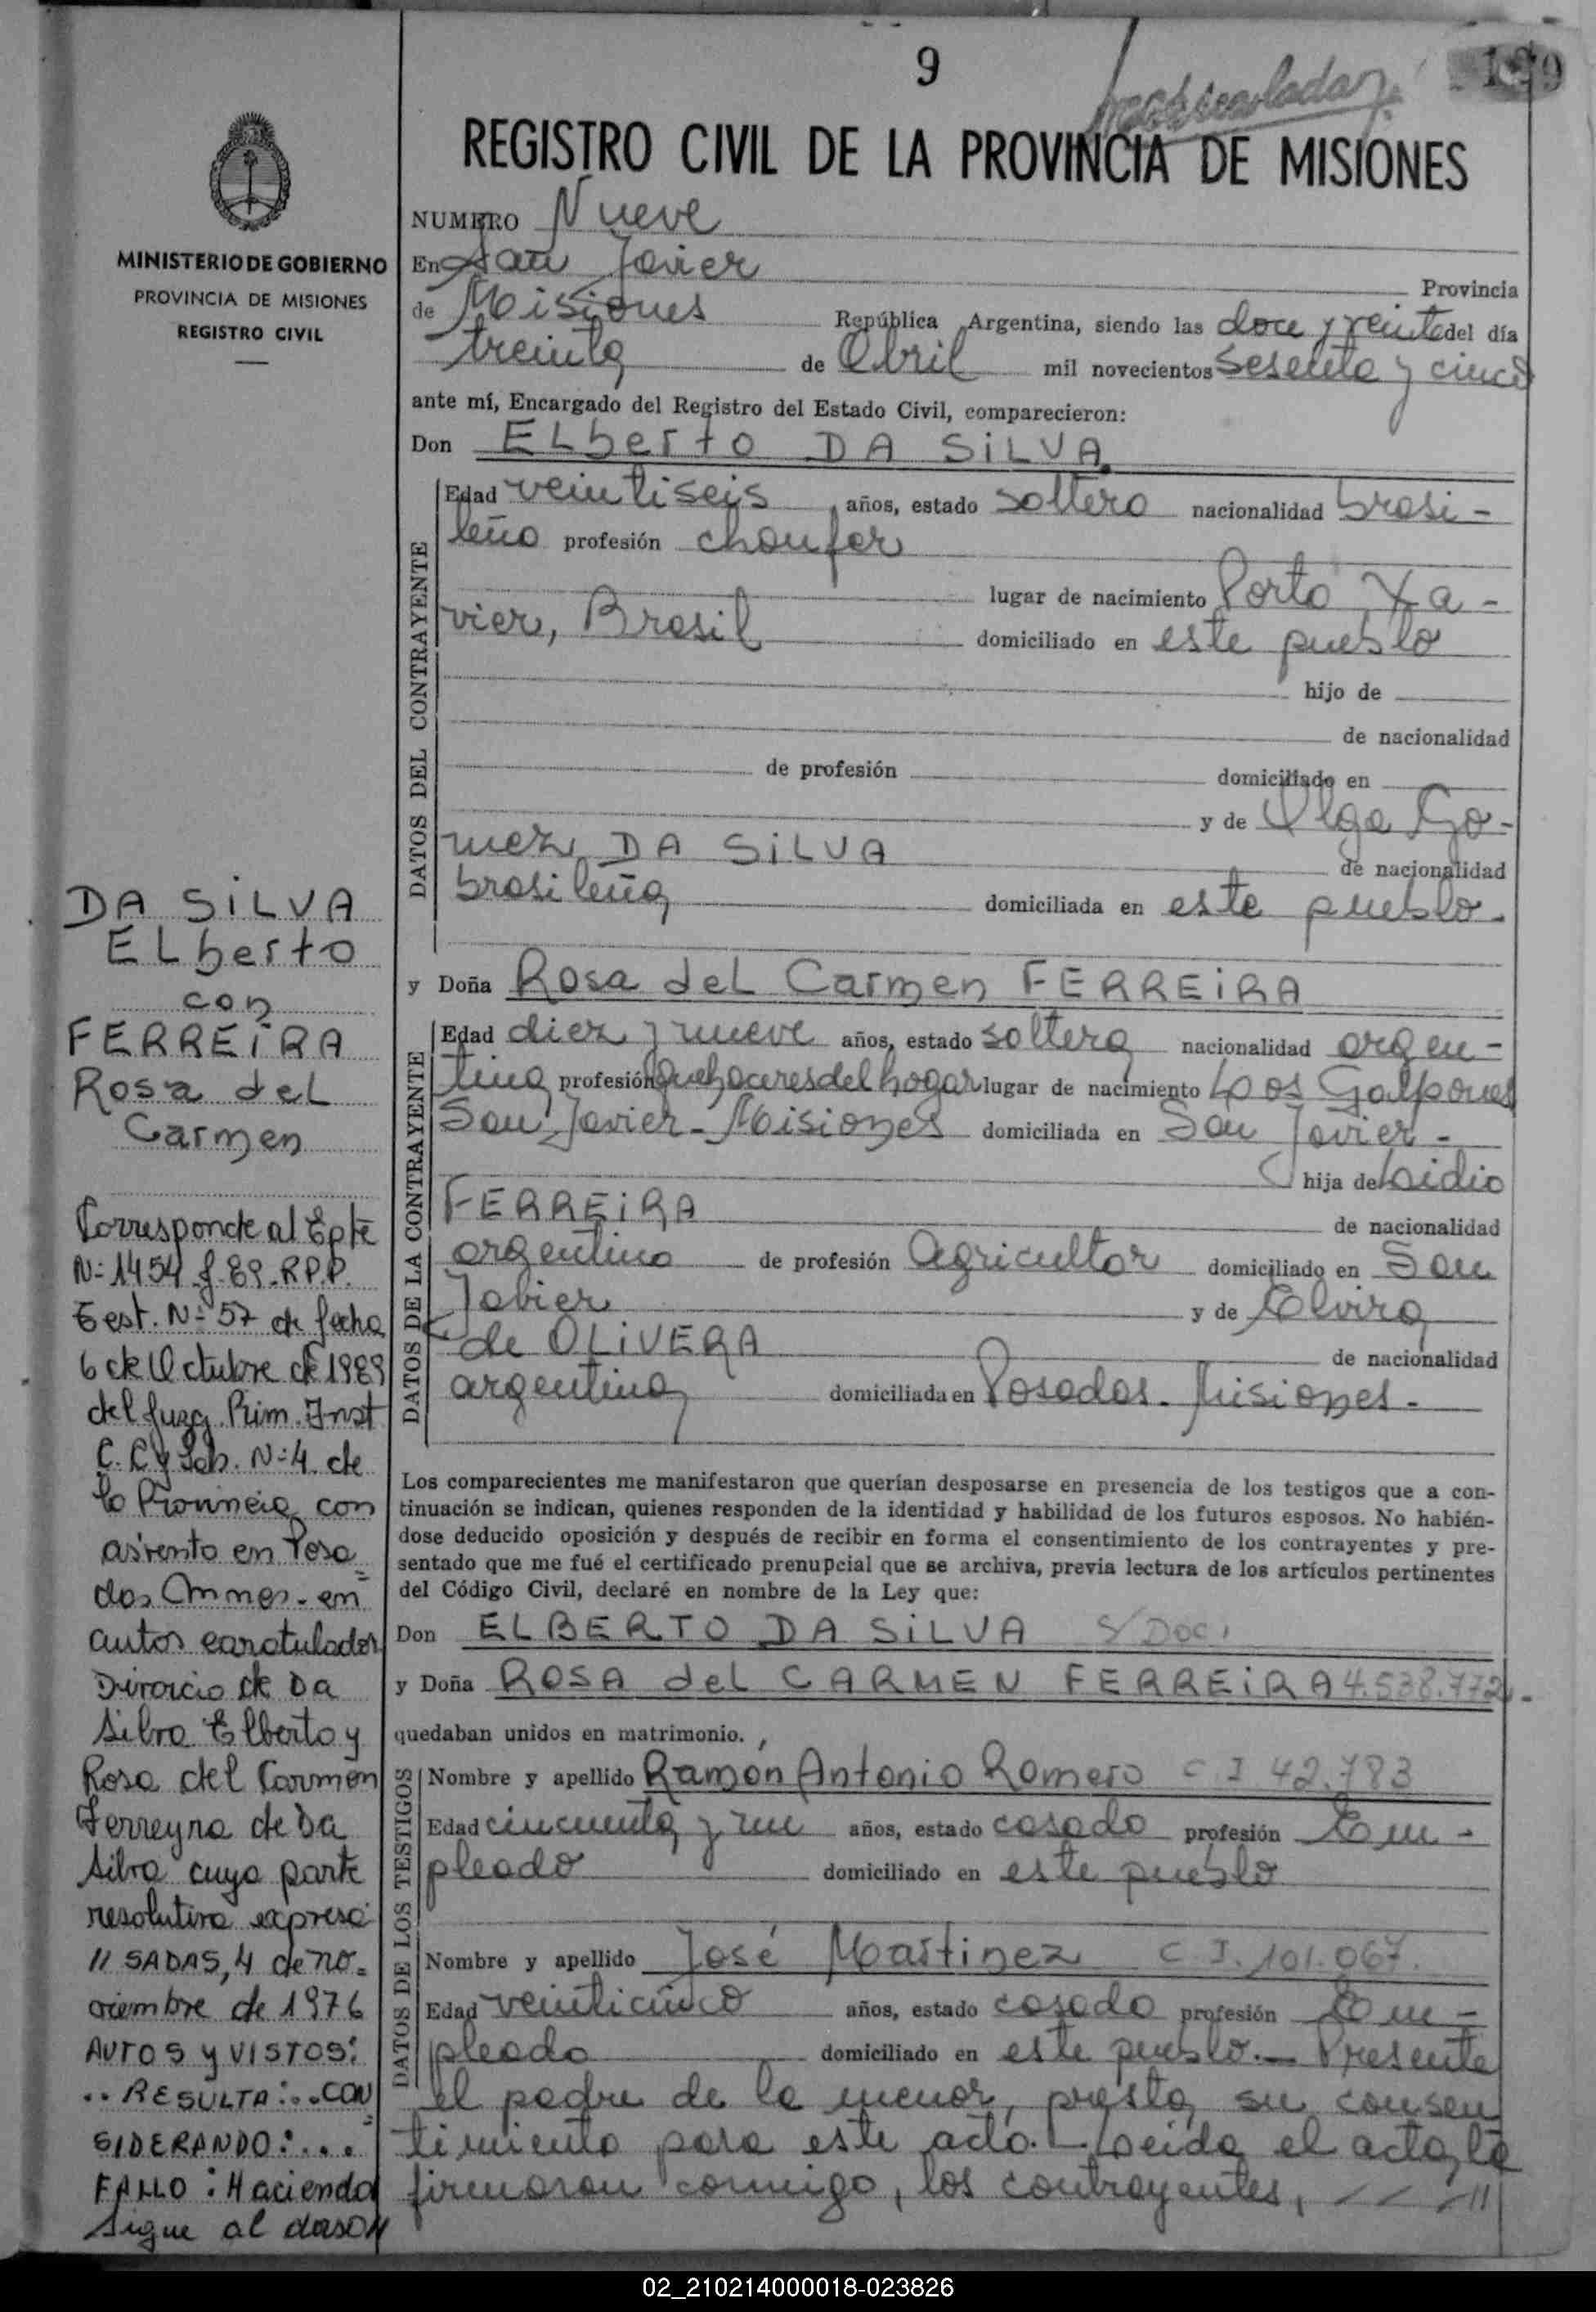 9
REGISTRO CIVIL DE LA PROVINCIA DE MISIONES
MINISTERIO DE GOBIERNO
PROVINCIA DE MISIONES
REGISTRO CIVIL
NUMERO Nueve
En San Javier Provincia
de Misiones República Argentina, siendo las doce y veinte del día
treinta de Abril mil novecientos sesenta y cinco
ante mí, Encargado del Registro del Estado Civil, comparecieron:
Don ELberto DA SiLVA
DATOS DEL CONTRAYENTE
Edad veintiseis años, estado soltero nacionalidad brasi-
leño profesión choufer
lugar de nacimiento Porto Xa-
vier, Brasil domiciliado en este pueblo
hijo de
de nacionalidad
de profesión domiciliado en
y de Olga Go-
mez DA SiLVA de nacionalidad
brasileña domiciliada en este pueblo.
y Doña Rosa deL Carmen FERREiRA
DATOS DE LA CONTRAYENTE
Edad diez y nueve años, estado soltera nacionalidad argen-
tina profesión quehaceres del hogar lugar de nacimiento Los Galpones
San Javier - Misiones domiciliada en San Javier -
hija de Lidio
FERREiRA de nacionalidad
argentino de profesión Agricultor domiciliado en San
Javier y de Elvira
de OLiVERA de nacionalidad
argentina domiciliada en Posadas - Misiones -
Los comparecientes me manifestaron que querían desposarse en presencia de los testigos que a con-
tinuación se indican, quienes responden de la identidad y habilidad de los futuros esposos. No habién-
dose deducido oposición y después de recibir en forma el consentimiento de los contrayentes y pre-
sentado que me fué el certificado prenupcial que se archiva, previa lectura de los artículos pertinentes
del Código Civil, declaré en nombre de la Ley que:
Don ELBERTO DA SiLVA S/ Doc.
y Doña ROSA deL CARMEN FERREiRA 4.538.772 -
quedaban unidos en matrimonio.
DATOS DE LOS TESTIGOS
Nombre y apellido Ramón Antonio Romero C I 42.783
Edad cincuenta y un años, estado casado profesión Em-
pleado domiciliado en este pueblo
Nombre y apellido José Martinez C I. 101.067.
Edad veinticinco años, estado casado profesión Em-
pleado domiciliado en este pueblo.- Presente
el padre de la menor, presta su consen
timiento para este acto.- Leida el acta, la
firmaron conmigo, los contrayentes,
DA SiLVA
ELberto
con
FERREiRA
Rosa deL
Carmen
Corresponde al Epte
N=1454 f. 89. R.P.P.
Test. N=57 de fecha
6 de Octubre de 1989
del Juzg. Prim. Inst
C. C y Lab. N=4. de
la Provincia con
asiento en Posa
das Mnes. en
autos caratulados
Divorcio de Da
Silva Elberto y
Rosa del Carmen
Ferreyra de Da
Silva cuya parte
resolutiva expresa
// SADAS, 4 de no=
viembre de 1976
AUTOS y VISTOS:
.. RESULTA:..CON
SIDERANDO:....
FALLO: Haciendo
Sigue al dorso//
02_210214000018-023826